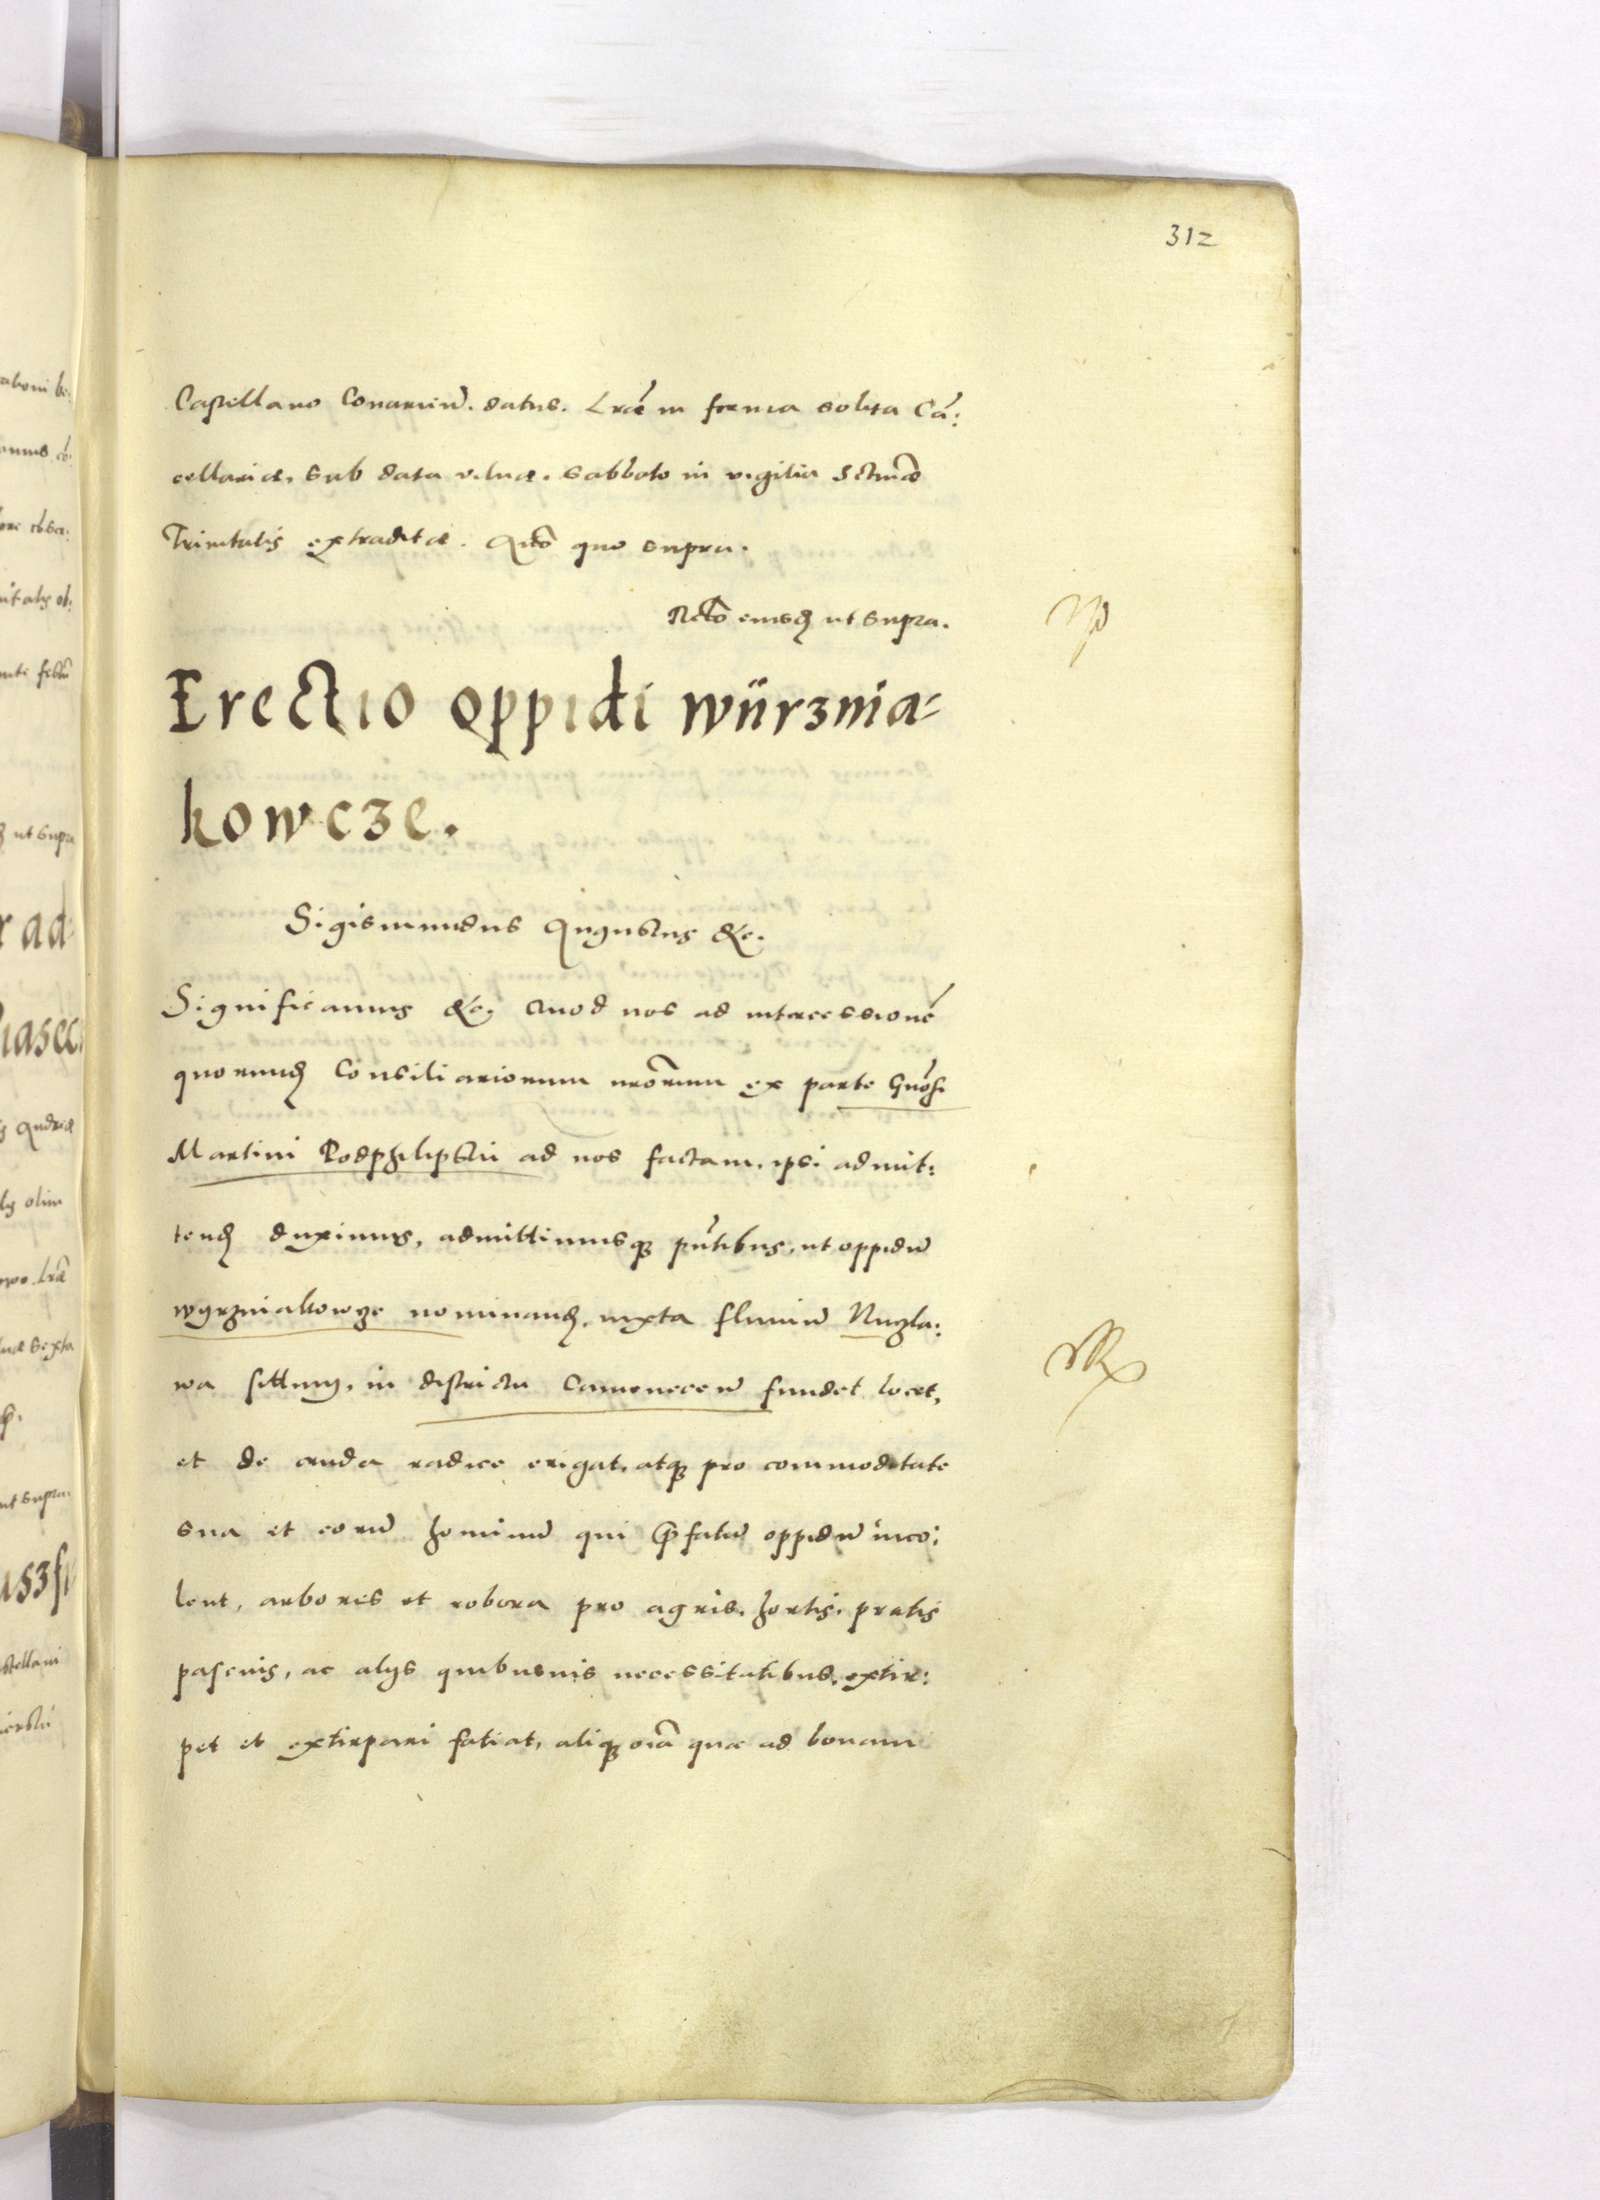 312
Castellano Conarien̄. datus. Lr̄æ in forma solita Cā:
cellariæ, sub data Vilnæ. Sabbato in vigilia Sctmæ
Trinitatis extraditæ. Año quo supra.
Rtō eiusd ut supra.
Erectio oppidi Wÿrznia=
kowcze.
Sigismundus Augustus &c.
Significamus &c. Quod nos ad intercessionē
quorund Consiliariorum nrōrum ex parte Gnōsi
Martini Podphilipskii ad nos factam, ipsi admit:
tend duximus, admittimusq pn̄tibus, ut oppidū
Wyrzniakowcze nominand, iuxta fluviū Niczla:
wa sittum, in districtu Camenecen̄ fundet locet,
et de cruda radice erigat, atq pro commoditate
sua et eorū hominū qui p̄fatū oppidū inco:
lent, arbores et robora pro agris, hortis, pratis
pascuis, ac alijs quibusuis necessitatibus, extir:
pet et extirpari fatiat, aliaq oīa quæ ad bonam